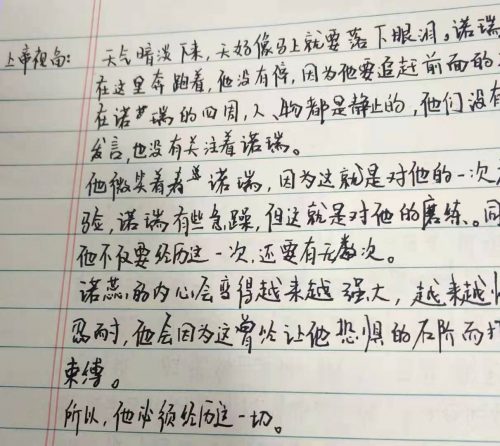 上帝视角: 天气暗淡下来,天好像马上就要落下眼泪。诺瑞
在这里奔跑着,他没有停,因为他要追赶前面的
在诺瑞的四周,人、物都是静止的,他们没有
发言,也没有关注着诺瑞。
他微笑着看诺瑞,因为这就是对他的一次
验,诺瑞有些急躁,但这就是对他的磨练。同
他不仅要经历这一次,还要有无数次。
诺蕊的内心会变得越来越强大,越来越
忍耐,他会因为这曾给让他恐惧的石阶而
束缚。
所以,他必须经历这一切。